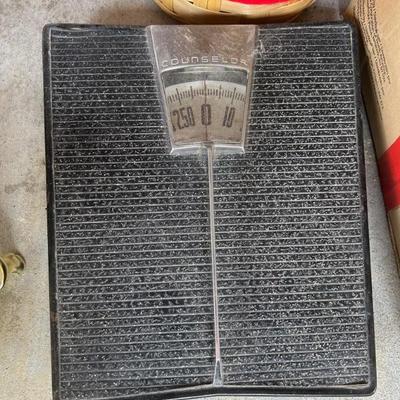 COUNSELOR
250 0 10